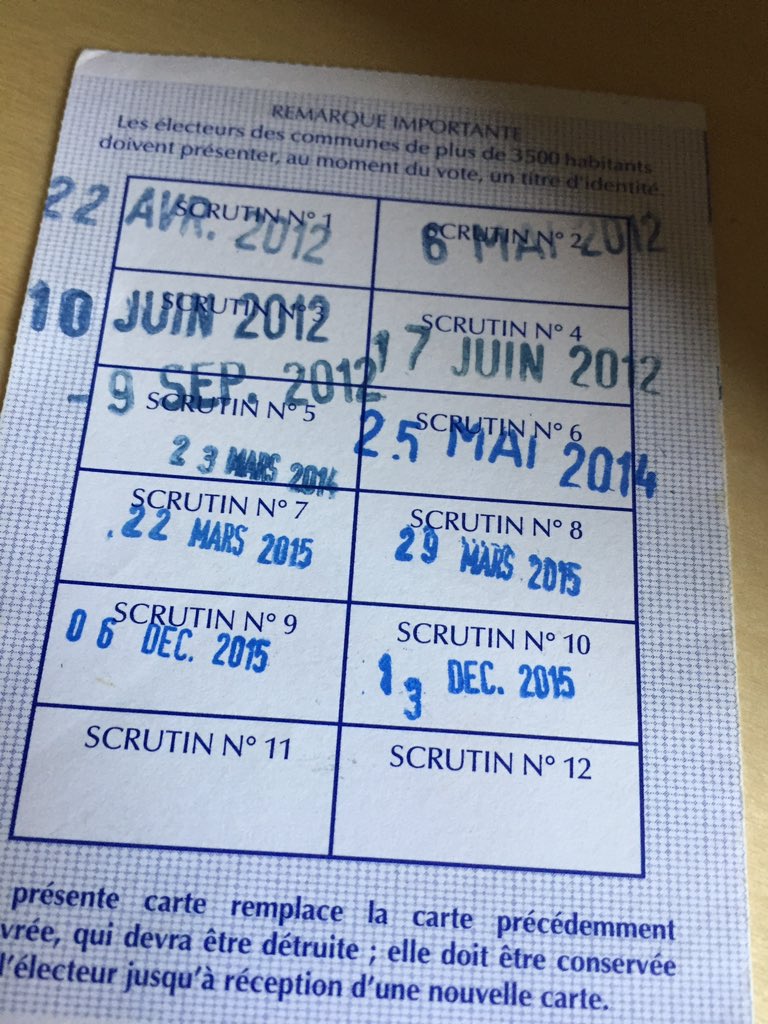 REMARQUE IMPORTANTE
Les électeurs des communes de plus de 3500 habitants
doivent présenter, au moment du vote, un titre d'identité
SCRUTIN N° 1
22 AVR. 2012
SCRUTIN N° 2
6 MAI 2012
SCRUTIN N° 3
10 JUIN 2012
SCRUTIN N° 4
17 JUIN 2012
- 9 SEP. 2012
SCRUTIN N° 5
23 MARS 2014
SCRUTIN N° 6
25 MAI 2014
SCRUTIN N° 7
22 MARS 2015
SCRUTIN N° 8
29 MARS 2015
SCRUTIN N° 9
06 DEC. 2015
SCRUTIN N° 10
13 DEC. 2015
SCRUTIN N° 11
SCRUTIN N° 12
présente carte remplace la carte précédemment
vrée, qui devra être détruite ; elle doit être conservée
l'électeur jusqu'à réception d'une nouvelle carte.